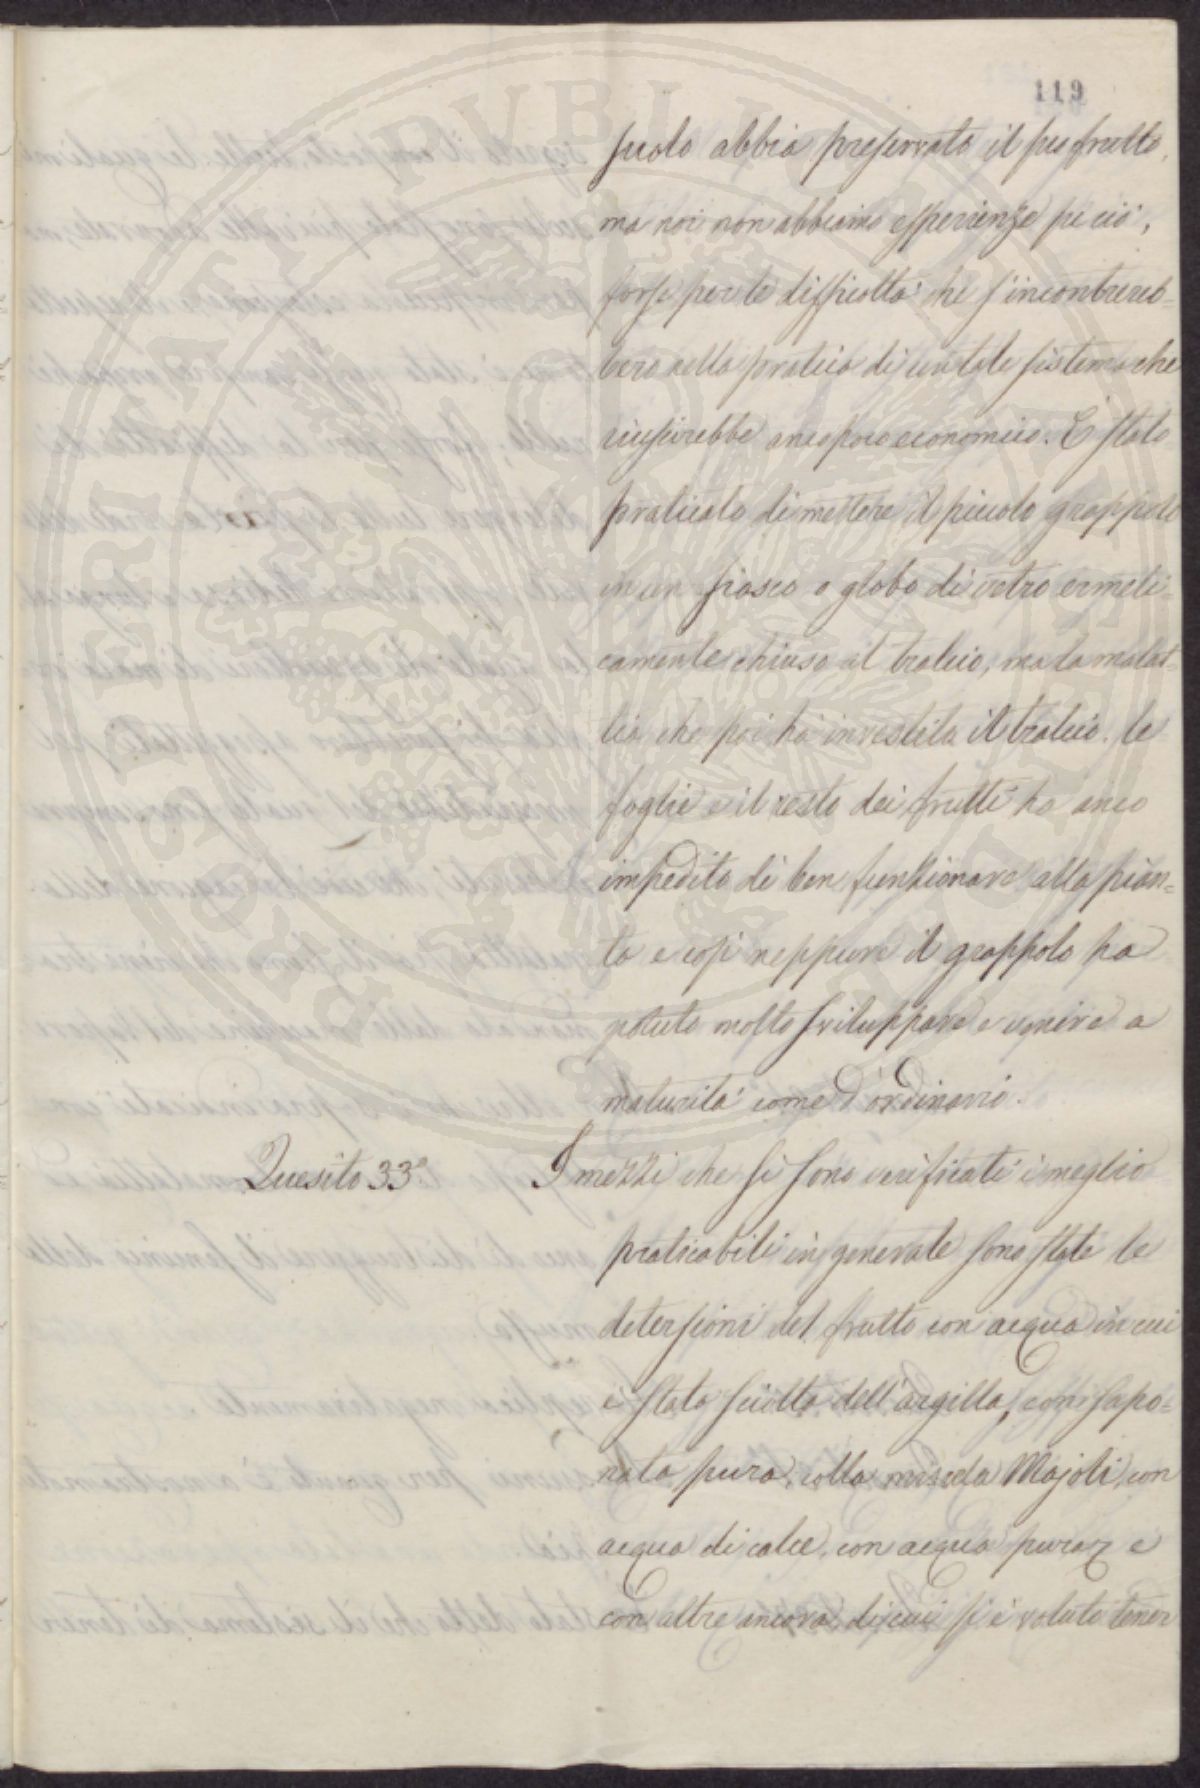 119
suolo abbia preservato il suo frutto,
ma noi non abbiamo esperienze su ciò,
forse per le difficoltà che s'incontrereb=
bero nella pratica di un tale sistema che
riuscirebbe anco poco economico. È stato
praticato di mettere il piccolo grappolo
in un fiasco o globo di vetro ermeti=
camente chiuso al tralcio, ma la malat=
tia che poi ha investita il tralcio, le
foglie e il resto dei frutti ha anco
impedito di ben funzionare alla pian=
ta e così neppure il grappolo ha
potuto molto sviluppare e venire a
maturità come d'ordinario.
Quesito 33° I mezzi che si sono verificati i meglio
praticabili in generale sono state le
detersioni del frutto con acqua in cui
è stata sciolta dell'argilla, con sapo=
nata pura, colla miscela Majoli, con
acqua di calce, con acqua pura e
con altre ancora, di cui si è voluto tener
PROSPERITATI PUBLICAE AUGENDAE